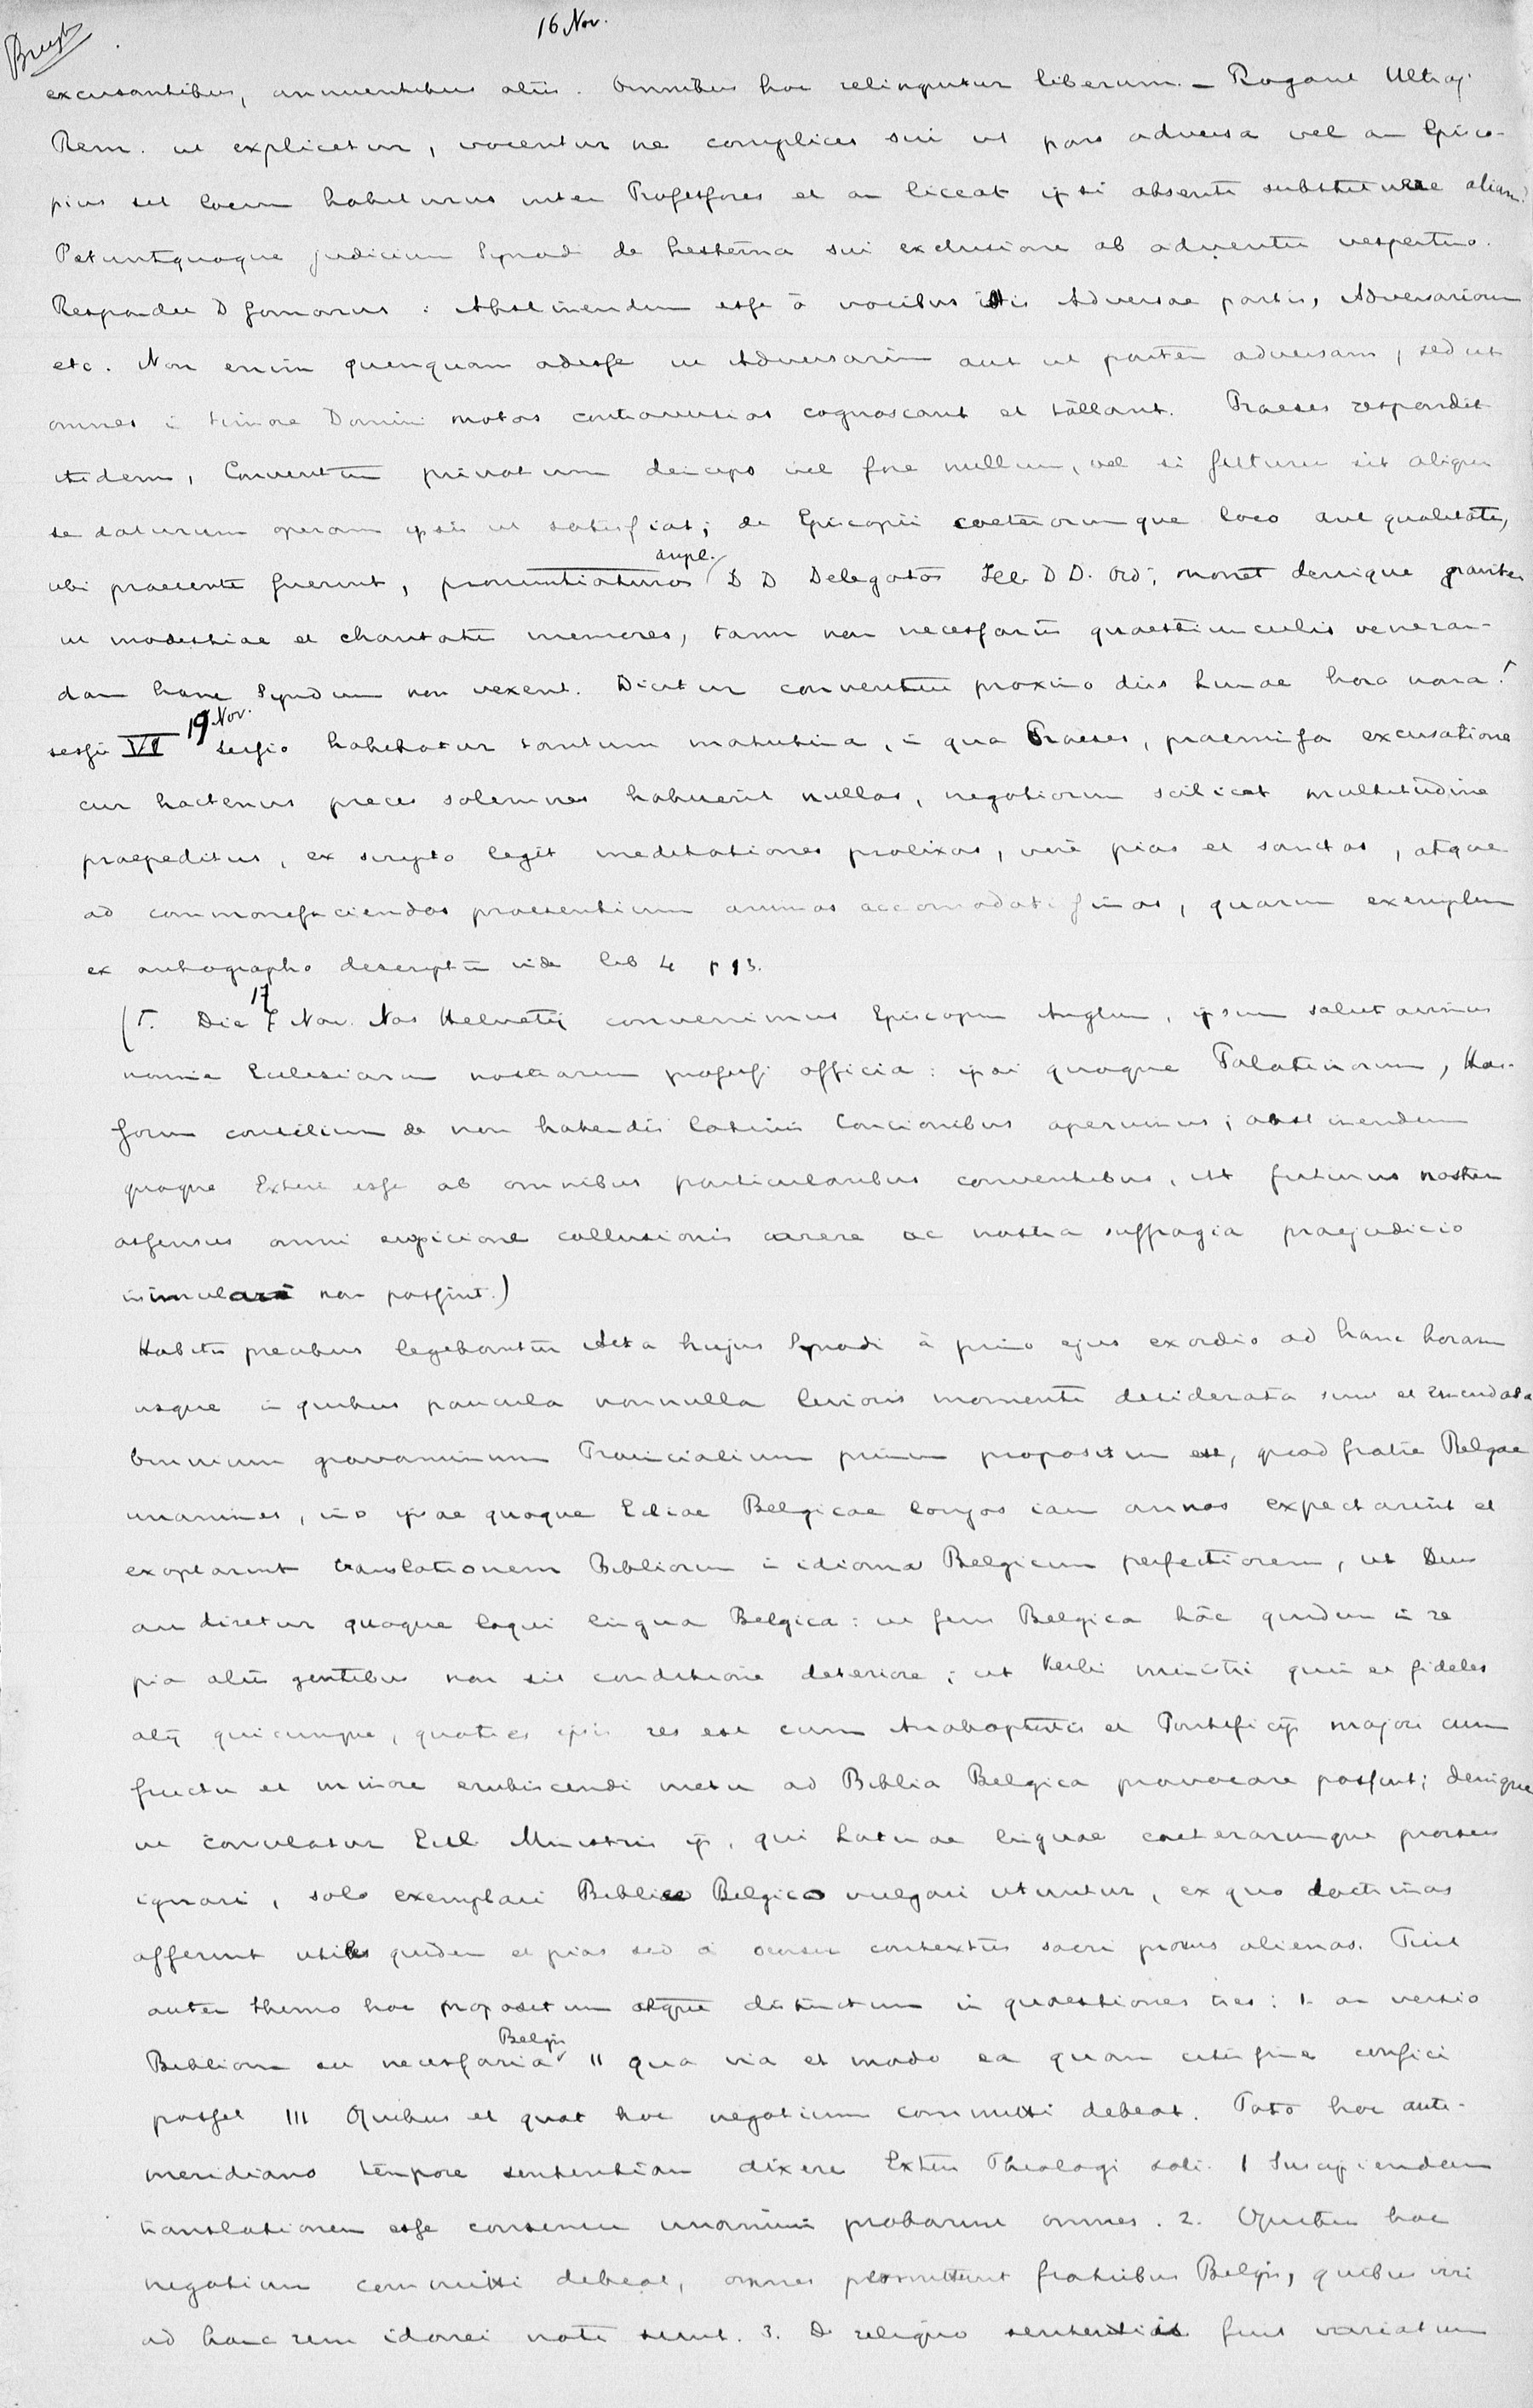 16 Nov.
excusantibus, annuentibus aliis. Omnibus hoc relinquitur liberum. — Rogant Ultraj.
Rem. ut explicetur, vocentur ne complices sui ut pars adversa vel an Episco-
pius sit locum habiturus inter Professores et an liceat ipsi absenti substituere alium.
Petunt quoque judicium Synodi de hesterna sui exclusione ab adventu vespertino.
Respondit D Gomarus: Abstinendum esse à vocibus istis Adversae partis, Adversariorum
etc. Non enim quenquam adesse ut Adversarium aut ut partem adversam, sed ut
omnes i timore Domini motas controversias cognoscant et tollant. Praeses respondit
itidem, Conventum privatum deinceps vel fore nullum, vel si futurus sit aliquis
se daturum operam ipsis ut satisfiat; de Episcopii caeterorumque loco aut qualitate,
ubi praesentes fuerint, pronuntiaturos ampl. D D Delegatos Ill. D D. Ord; monet denique graviter
ut modestiae et charitatis memores, tam non necessariis quaestiunculis veneran-
dam hanc Synodum non vexent. Dicitur conventui proximo dies Lunae hora nona.
sessio VI 19 Nov. Sessio habebatur tantum matutina, i qua Praeses, praemissa excusatione
cur hactenus preces solemnes habuerit nullas, negotiorum scilicet multitudine
praepeditus, ex scripto legit meditationes prolixas, verè pias et sanctas, atque
ad commonefaciendos praesentium animos accomodatissimas, quarum exemplum
ex autographo descriptum vide lib 4 p 13.
(Γ. Die 17 Nov. Nos Helvetij convenimus Episcopum Anglum, ipsum salutavimus
nomine Ecclesiarum nostrarum professi officia: ipsi quoque Palatinorum, Has-
sorum consilium de non habendis latinis Concionibus aperuimus; abstinendum
quoque Exteris esse ab omnibus particularibus conventibus, ut futurus noster
assensus omni suspicione collusionis carere ac nostra suffragia praejudicio
insimulari non possint.)
Habitis precibus legebantur Acta hujus Synodi à primo ejus exordio ad hanc horam
usque in quibus paucula nonnulla levioris momenti desiderata sunt et emendata
Omnium gravaminum Provincialium primum propositum est, quod fratres Belgae
unanimes, imo ipsae quoque Ecliae Belgicae longos iam annos expectarint et
exoptarint translationem Bibliorum i idioma Belgicum perfectiorem, ut Deus
audiretur quoque loqui lingua Belgica: ut gens Belgica hâc quidem in re
pia aliis gentibus non sit conditione deteriore; ut Verbi ministri quin et fideles
alij quicunque, quoties ipsis res est cum Anabaptistis et Pontificijs majori cum
fructu et minore erubiscendi metu ad Biblia Belgica provocare possint; denique
ut consulatur Eccl. Ministris ijs, qui Latinae linguae caeterarumque prorsus
ignari, solo exemplari Biblico Belgico vulgari utuntur, ex quo doctrinas
afferunt utiles quidem et pias sed à sensu contextus sacri prorsus alienas. Fuit
autem thema hoc propositum atque distinctum in quaestiones tres: 1. an versio
Bibliorum sit necessaria Belgis II qua via et modo ea quam citissime confici
posset III Quibus et quot hoc negotium committi debeat. Toto hoc ante-
meridiano tempore sententiam dixere Exteri Theologi soli. 1 Suscipiendam
translationem esse consensu unanimi probarunt omnes. 2. Quibus hoc
negotium committi debeat, omnes permittunt fratribus Belgis, quibus viri
ad hanc rem idonei noti sunt. 3. De reliquo sententiis fuit variatum